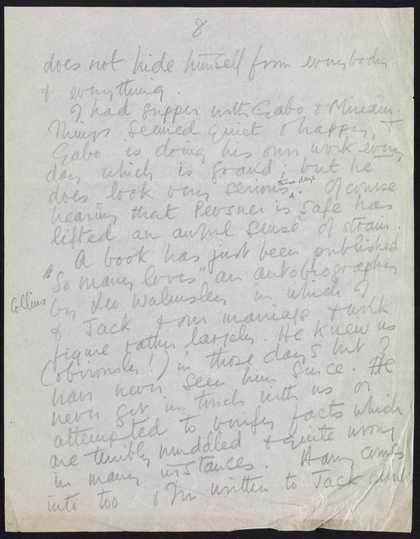 8
does not hide himself from everybody
& everything.
I had supper with Gabo & Miriam.
Things seemed quiet & happy, &
Gabo is doing his own work every
day which is grand, but he
does look very serious these days. Of course
hearing that Pevsner is safe has
lifted an awful sense of strain.
A book has just been published
"So many loves" an autobiography
Collins by Leo Walmsley in which I
& Jack & our marriage & work
figure rather largely. He knew us
(obviously!) in those days but I
have never seen him since. He
never got in touch with us or
attempted to verify facts which
are terribly muddled & quite wrong
in many instances. Harry comes
into too & I'm written to Jack